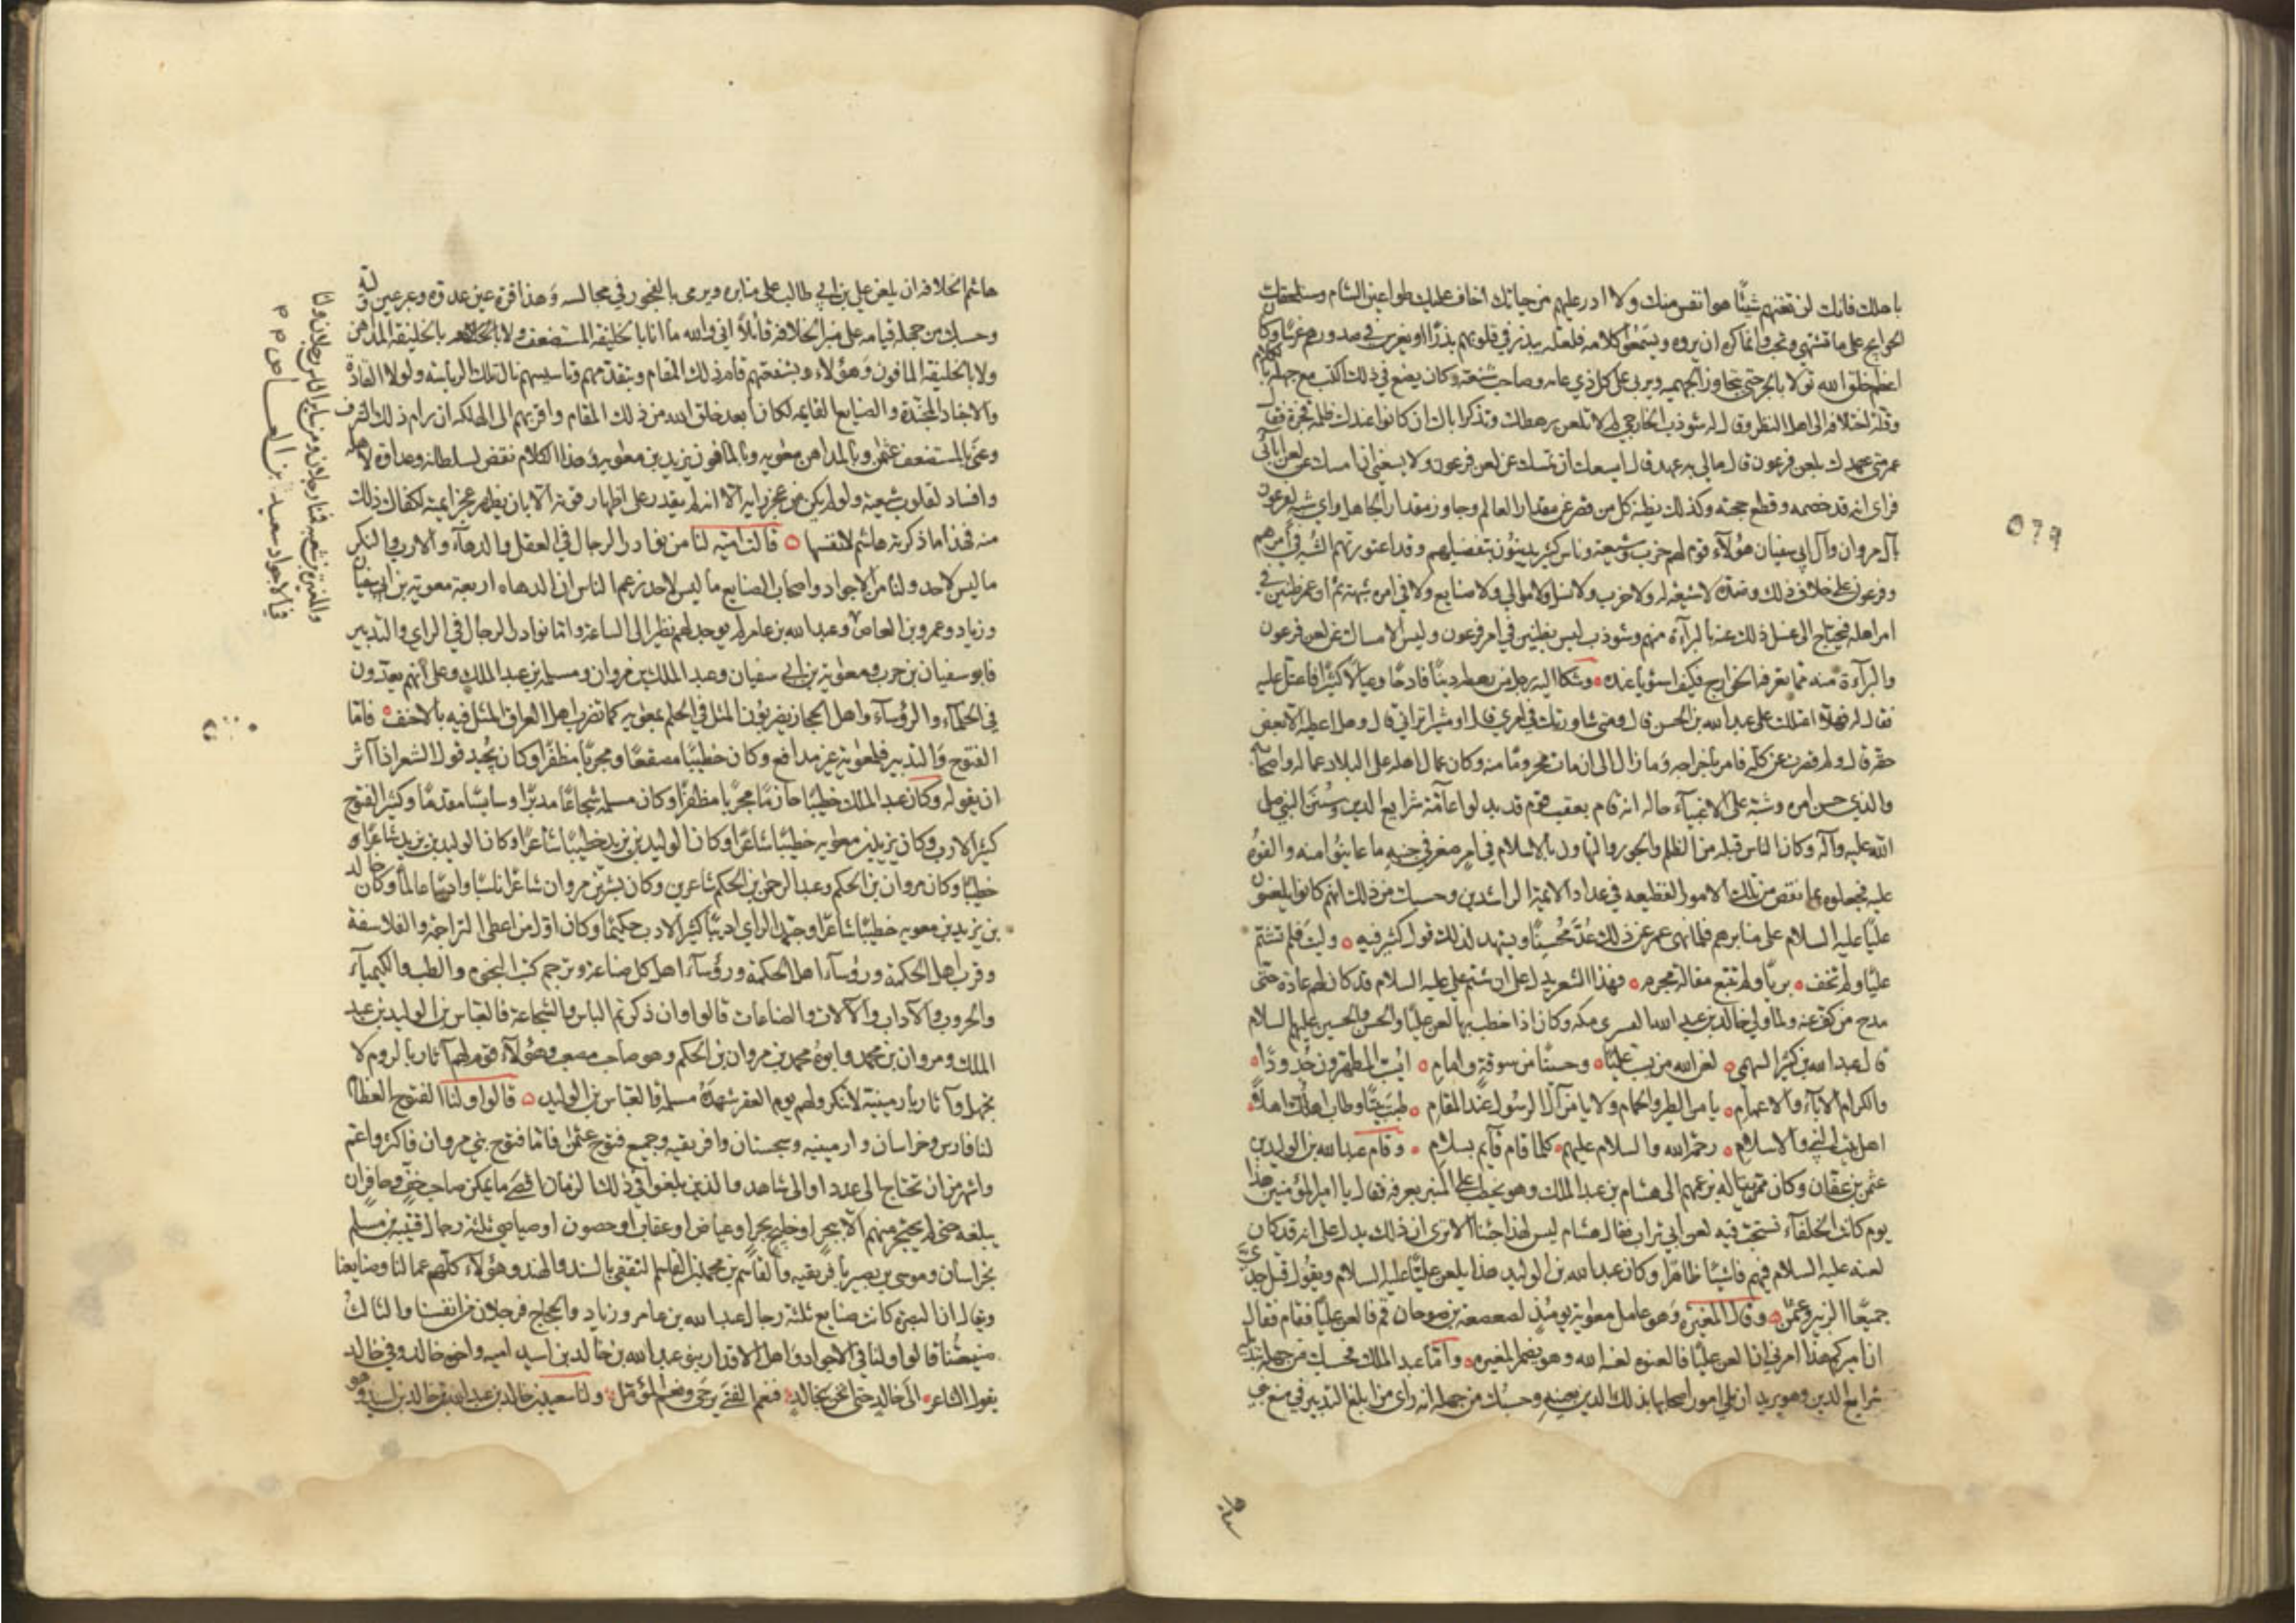 باهلك فانك لن تغنيهم شيئًا هو انفس منك ولا ادر عليهم من حياتك اخاف عليك طواعين الشام وستلحقك
الحوايج على ما تشتهي وتحب وانما كره ان يروه ويسمعوا كلامه فلعله يبذر في قلوبهم بذرًا او يغرس في صدورهم غرسًا وكان
اعظم خلق الله قولا بالجبر حتى يتجاوز الجهميه ويربي على كل ذي غايه وصاحب شنعه وكان يضع في ذلك الكتب مع جهله بالكلام
وقلة اختلافه الى اهل النظر وقال له شوذب الخارجي لم لا تلعن رهطك وتذكر اباك ان كانوا عندك ظلمة فجرة فقال
عمر متى عهدك بلعن فرعون قال مالي به عهد قال ايسعك ان تمسك عن لعن فرعون ولا يسعني ان امسك عن لعن ابائي
فراى انه قد خصمه وقطع حجته وكذلك يظنه كل من قصر عن مقدار العالم وجاوز مقدار الجاهل واي شبه لفرعون
بآل مروان وآل ابي سفيان هؤلاء قوم لهم حزب وشيعة وناس كثير يدينون بتفضيلهم وقد اعتورتهم الشبه في امرهم
وفرعون على خلاف ذلك وضده لا شيعة له ولا حزب ولا نسل ولا موالي ولا صنايع ولا في امره شبهة ثم ان عمر ظنين في
امر اهله فيحتاج الى غسل ذلك عنه بالبرآءة منهم وشوذب ليس بظنين في امر فرعون وليس الامساك عن لعن فرعون
والبرآءة منه مما تعرفه الخوارج فكيف استويا عنده وشكا اليه رجل من رهطه دينًا فادحًا وعيالًا كثيرًا فاعتل عليه
فقال له فهلا اعتللت على عبد الله بن الحسن قال ومتى شاورتك في امري قال او مشيرًا تراني قال وهل اعطيته الا بعض
حقه قال ولم قصرت عن كله فامر باخراجه وما زال الى ان مات محرومًا منه وكان عمال اهله على البلاد عماله واصحابه
والذي حسن امره وشبه على الاغبياء حاله انه قام بعقب قوم قد بدلوا عامة شرايع الدين وسنن النبي صلى
الله عليه وآله وكان الناس قبله من الظلم والجور والتهاون بالاسلام في امر صغر في جنبه ما عاينوا منه والفوه
عليه فجعلوه بما نقص من تلك الامور الفظيعه في عداد الائمة الراشدين وحسبك من ذلك انهم كانوا يلعنون
عليًا عليه السلام على منابرهم فلما نهى عمر عن ذلك عد محسنًا ويشهد لذلك قول كثير فيه وليت فلم تشتم
عليًا ولم تخف بريًا ولم تتبع مقالة مجرم وهذا الشعر يدل على ان شتم علي عليه السلام قد كان لهم عادة حتى
مدح من كف عنه ولما ولي خالد بن عبد الله القسري مكه وكان اذا خطب بها لعن عليًا والحسن والحسين عليهم السلام
قال عبد الله بن كثير السهمي لعن الله من يسب عليًا وحسينًا من سوقة وامام ايسب المطهرون جدودًا
والكرام الآباء والاعمام يامن الطير والحمام ولا يامن آل الرسول عند المقام طبت بيتًا وطاب اهلك اهلًا
اهل بيت النبي والاسلام رحمة الله والسلام عليهم كلما قام قايم بسلام وقام عبد الله بن الوليد بن
عثمن بن عفان وكان ممن يناله بزعمهم الى هشام بن عبد الملك وهو يخطب على المنبر بعرفه فقال يا امير المؤمنين هذا
يوم كانت الخلفاء تستحب فيه لعن ابي تراب فقال هشام ليس لهذا جئنا الا ترى ان ذلك يدل على انه قد كان
لعنه عليه السلام فيهم فاشيًا ظاهرا وكان عبد الله بن الوليد هذا يلعن عليًا عليه السلام ويقول قتل جدي
جميعًا الزبير وعثمن وقال المغيره وهو عامل معويه يومئذ لصعصعة بن صوحان قم فالعن عليًا فقام فقال
ان اميركم هذا امرني ان العن عليًا فالعنوه لعنه الله وهو يضمر المغيره واما عبد الملك فحسبك من جهله تبديله
شرايع الدين وهو يريد ان يلي امور اصحابها بذلك الدين بعينه وحسبك من جهله انه راى من ابلغ التدبير في منع بني
٥٦٩
هاشم الخلافه ان يلعن علي بن ابي طالب على منابره ويرمى بالفجور في مجالسه وهذا قرة عين عدوه وعبر عين وليه
وحسبك من جهله قيامه على منبر الخلافه قايلًا اني والله ما انا بالخليفة المستضعف ولا بالخليفة المداهن
ولا بالخليفة المافون وهؤلاء سلفه وائمته وبشفعتهم قام ذلك المقام وبتقدمهم وتاسيسهم نال تلك الرياسه ولولا العادة
والاجناد المجندة والصنايع القايمه لكان ابعد خلق الله من ذلك المقام واقربهم الى الهلكه ان رام ذلك الشرف
وعنى بالمستضعف عثمن وبالمداهن معويه وبالمافون يزيد بن معويه وهذا الكلام نقض لسلطانه وعداوة لاهله
وافساد لقلوب شيعته ولو لم يكن من عجز رايه الا انه لم يقدر على اظهار قوته الا بان يظهر عجز ايمته لكفاك ذلك
منه فهذا ما ذكرته هاشم لانفسها قالت اميه لنا من نوادر الرجال في العقل والدهاء والادب والنكر
ما ليس لاحد ولنا من الاجواد واصحاب الصنايع ما ليس لاحد زعم الناس ان الدهاه اربعة معويه بن ابي سفيان
وزياد وعمرو بن العاص وعبد الله بن عامر لم يوجد لهم نظير الى الساعة واما نوادر الرجال في الراي والتدبير
فابو سفيان بن حرب ومعويه بن ابي سفيان وعبد الملك بن مروان ومسلمه بن عبد الملك وعلى انهم يعدون
في الحلماء والرؤساء واهل الحجاز يضربون المثل في الحلم بمعويه كما تضرب اهل العراق المثل فيه بالاحنف فاما
الفتوح والتدبير فلمعويه غير مدافع وكان خطيبًا مصقعًا ومجربًا مظفرًا وكان يجيد قول الشعر اذا آثر
ان يقوله وكان عبد الملك خطيبًا حازمًا مجربًا مظفرًا وكان مسلمه شجاعًا مدبرًا وسايسًا مقدمًا وكثير الفتوح
كثير الادب وكان يزيد بن معويه خطيبًا شاعرًا وكان الوليد بن يزيد خطيبًا شاعرًا وكان الوليد بن يزيد شاعرًا و
خطيبًا وكان مروان بن الحكم وعبد الرحمن بن الحكم شاعرين وكان بشر بن مروان شاعرًا ناسبًا واديبًا عالمًا وكان خالد
بن يزيد بن معويه خطيبًا شاعرًا وجيد الراي اديبًا كثير الادب حكيمًا وكان اول من اعطى التراجمة والفلاسفة
وقرب اهل الحكمة ورؤساء اهل الحكمة ورؤساء اهل كل صناعة وترجم كتب النجوم والطب والكيمياء
والحروب والآداب والآلات والصناعات قالوا وان ذكرتم الباس والشجاعة فالعباس بن الوليد بن عبد
الملك ومروان بن محمد وابوه محمد بن مروان بن الحكم وهو صاحب مصعب وهؤلاء قوم لهم آثار بالروم لا
تجهل وآثار بارمينية لا تنكر ولهم يوم العقر شهده مسلمة والعباس بن الوليد قالوا ولنا الفتوح العظام
لنا فارس وخراسان وارمينيه وسجستان وافريقيه وجميع فتوح عثمن فاما فتوح بني مروان فاكثر واعم
واشهر من ان تحتاج الى عدد او الى شاهد والذين بلغوا في ذلك الزمان اقصى ما يمكن صاحب خف وحافر ان
يبلغه حتى لم يحتجز منهم الا ببحر او خليج بحر او غياض او عقاب او حصون او صياصي ثلثة رجال قتيبه بن مسلم
بخراسان وموسى بن نصير بافريقيه والقاسم بن محمد بن القاسم الثقفي بالسند والهند وهؤلاء كلهم عمالنا وصنايعنا
ويقال ان البصرة كانت صنايع ثلثة رجال عبد الله بن عامر وزياد والحجاج فرجلان من انفسنا والثالث
صنيعتنا قالوا ولنا في الاجواد واهل الاقدار بنو عبد الله بن خالد بن اسيد اميه واخوه خالد وفي خالد
يقول الشاعر الى خالد حتى انخن بخالد فنعم الفتى يرجى ونعم المؤمل ولنا سعيد بن خالد بن عبد الله بن خالد بن اسيد وهو
والمغيرة بن شعبه فمنا رجلان ومن ساير الناس رجلان ولنا
في الاجواد سعيد بن العاص